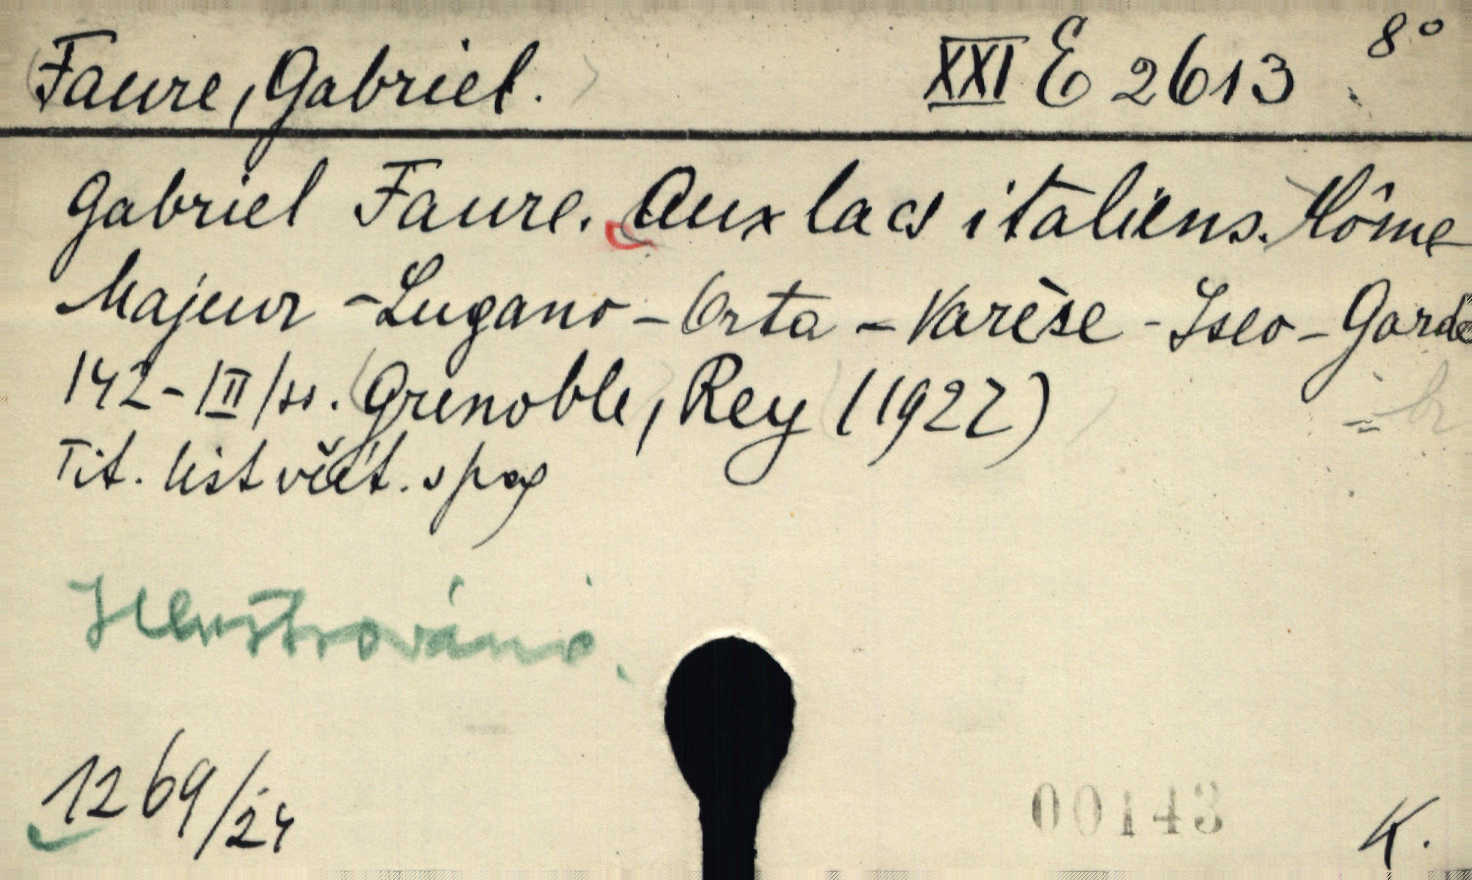 Faure, Gabriel. XXI E 2613 8°
Gabriel Faure. Aux lacs italiens. Côme
Majeur - Lugano - Orta - Varèse - Iseo - Garde
142 - III/ss. Grenoble, Rey (1922)
Tit. list včít. v pag
Ilustrováno.
1269/24
00143
K.